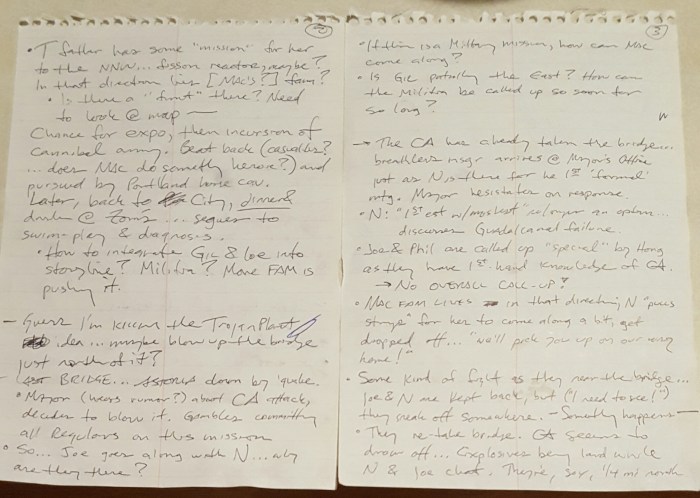 2
• T father has some "mission" for her
to the NNW... fission reactor, maybe?
In that direction lies [Mac's?] farm?
• Is there a "front" there? Need
to look @ map —
Chance for expo, then incursion of
Cannibal army. Beat back (casualties?
... does Mac do somethg heroic?) and
pursued by Portland home cav.
Later, back to City, dinner &
drinks @ Tom's ... segues to
swim-play & diagnosis.
• How to integrate Gil & Joe into
storyline? Militia? Mac FAM is
pushing it.
— Guess I'm killing the Trojan Plant
idea... maybe blow up the bridge
just north of it?
BRIDGE... Astoria down by 'quake.
• Mayor (hears rumor?) about CA attack,
decides to blow it. Gambles committing
all Regulars on this mission
• So... Joe goes along with N... why
are they there?
3
• If this is a Military mission, how can Mac
come along?
• Is Gil patrolling the East? How can
the Militia be called up so soon for
so long?
→ The CA has already taken the bridge...
breathless msgr arrives @ Mayor's Office
just as N is there for he 1st "formal"
mtg. Mayor hesitates on response.
• N: "1st est w/most est" no longer an option...
discusses Guadalcanal failure.
• Joe & Phil are called up "special" by Hong
as they have 1st-hand knowledge of CA.
→ No OVERALL CALL-UP?
• MAC FAM LIVES in that direction, N "pulls
strings" for her to come along a bit, get
dropped off... "we'll pick you up on our way
home!"
• Some kind of fight as they near the bridge...
Joe & N are kept back, but ("I need to see!")
they sneak off somewhere. — Somethg happens —
• They re-take bridge. CA seems to
draw off... Explosives being laid while
N & Joe chat. They're, say, 1/4 mi north